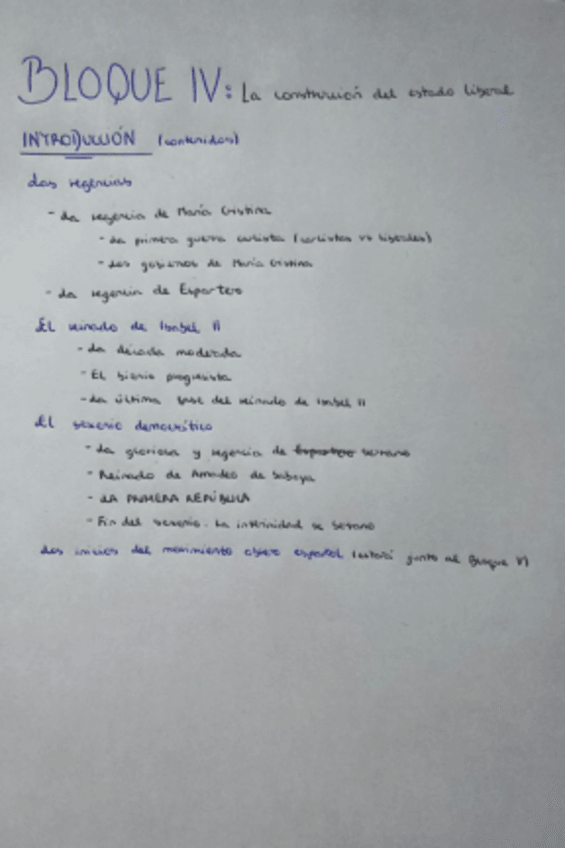 BLOQUE IV: La construcción del estado liberal
INTRODUCCIÓN (contenidos)
Las regencias
- La regencia de María Cristina
- La primera guerra carlista (carlistas vs liberales)
- Los gobiernos de María Cristina
- La regencia de Espartero
El reinado de Isabel II
- La década moderada
- El bienio progresista
- La última fase del reinado de Isabel II
El sexenio democrático
- La gloriosa y regencia de Espartero Serrano
- Reinado de Amadeo de Saboya
- LA PRIMERA REPÚBLICA
- Fin del sexenio. La interinidad de Serrano
Los inicios del movimiento obrero español (estará junto al Bloque V)